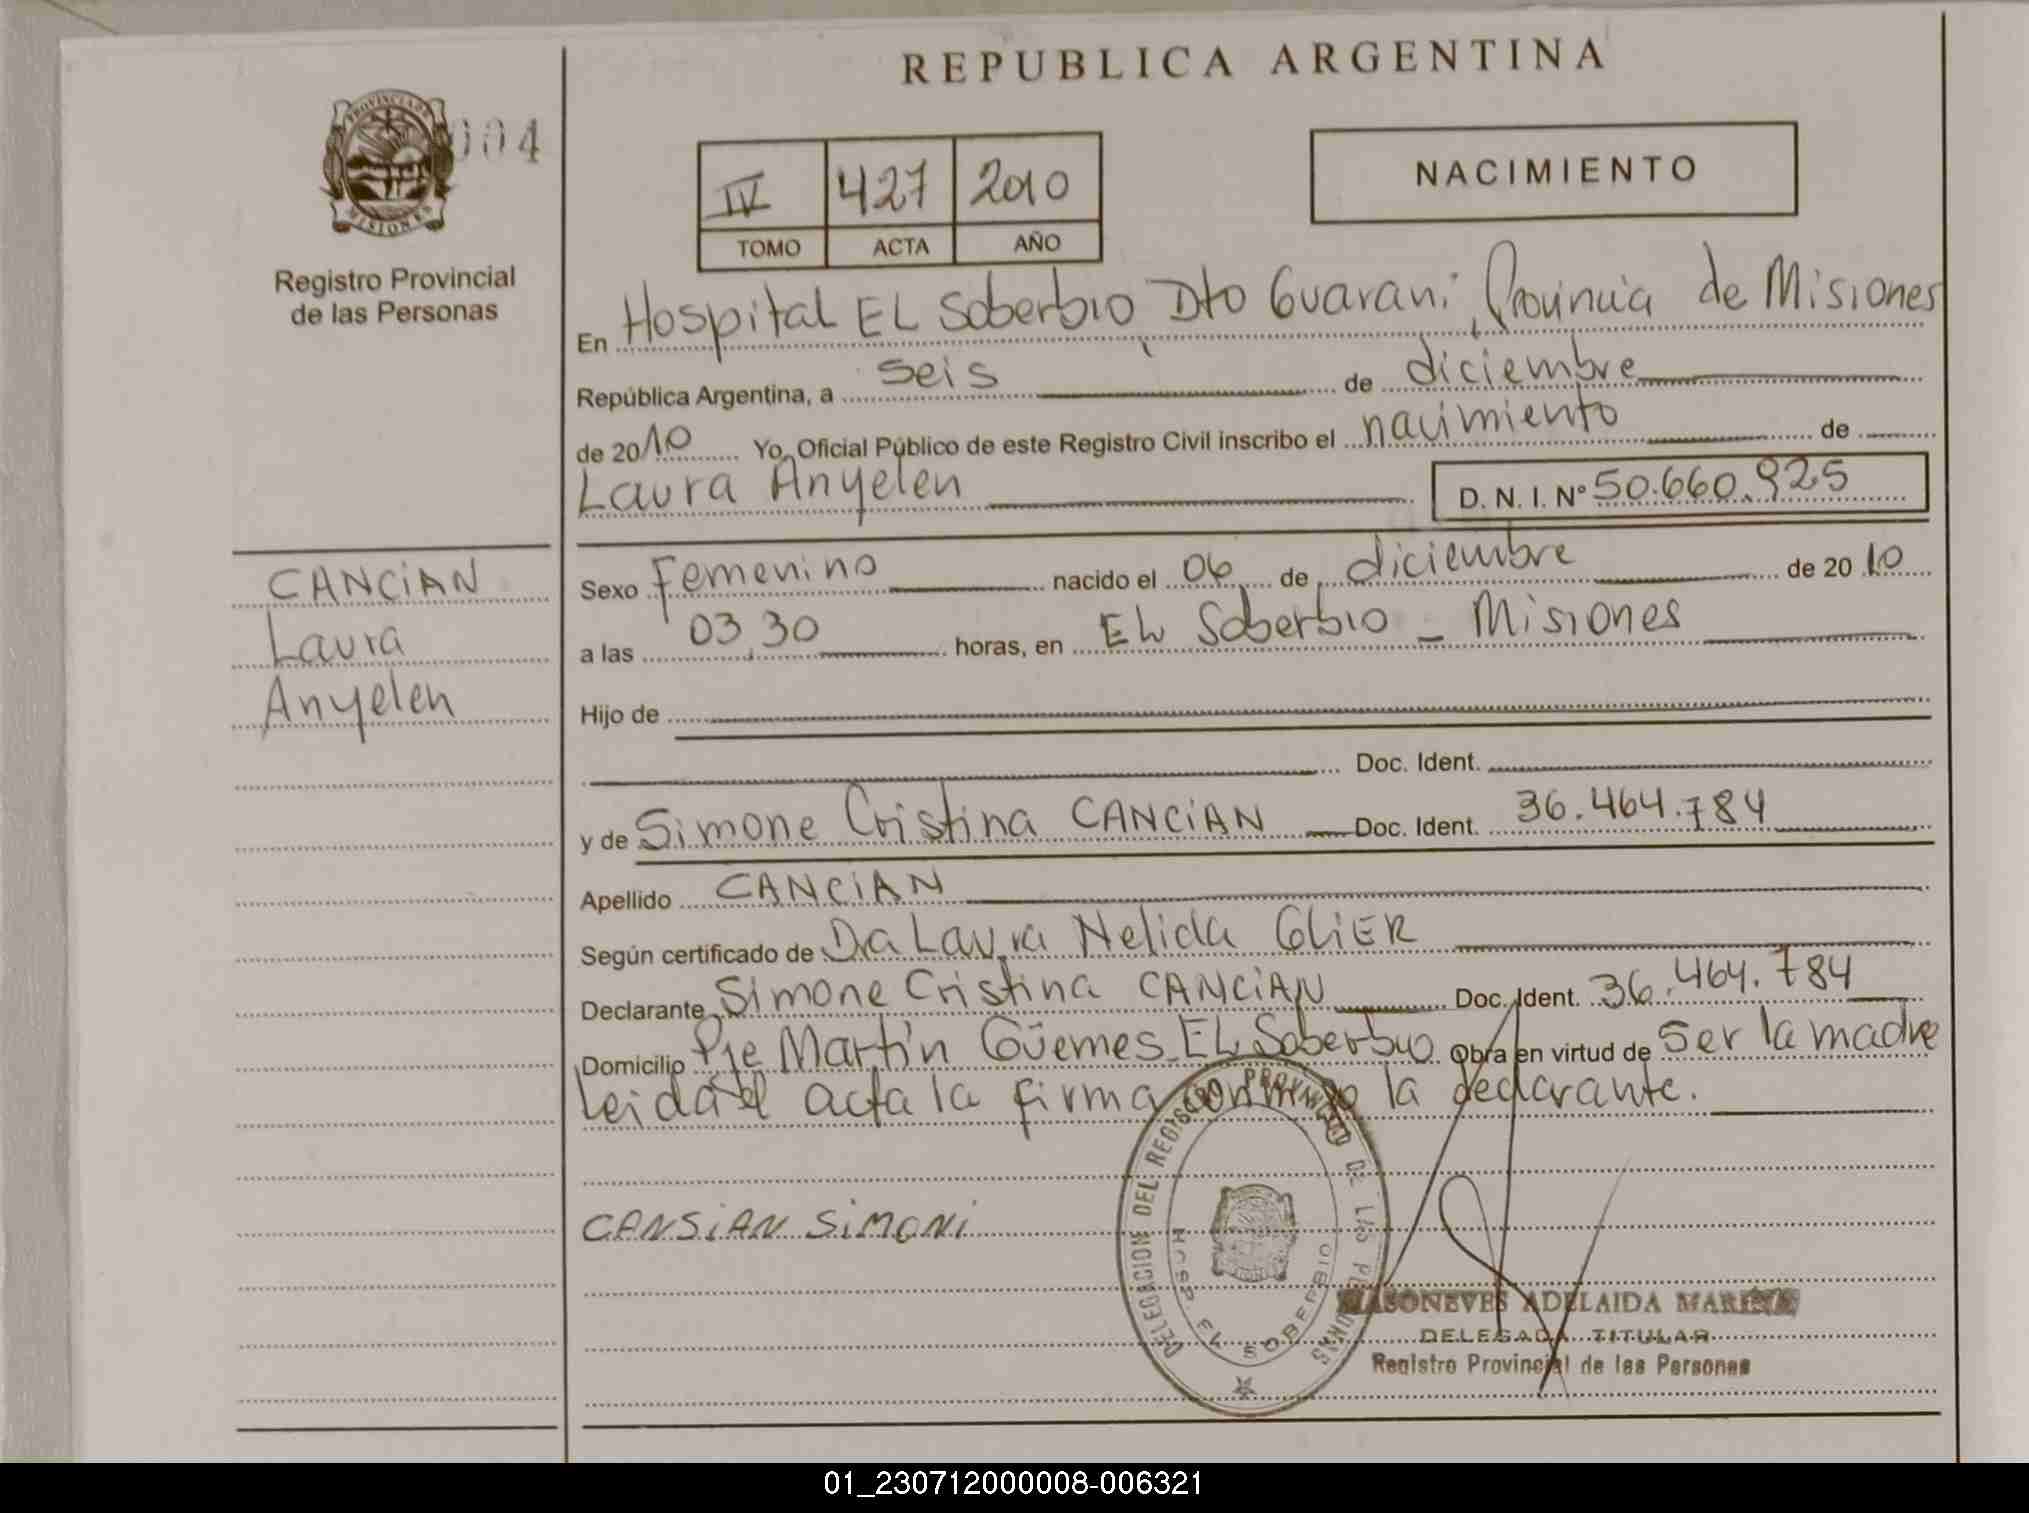 REPUBLICA ARGENTINA
PROVINCIA DE MISIONES
004
Registro Provincial
de las Personas
IV 427 2010
TOMO ACTA AÑO
NACIMIENTO
En Hospital EL Soberbio Dto Guarani, Provincia de Misiones
República Argentina, a seis de diciembre
de 2010 Yo, Oficial Público de este Registro Civil inscribo el nacimiento de
Laura Anyelen D. N. I. Nº 50.660.925
CANCIAN
Laura
Anyelen
Sexo Femenino nacido el 06 de diciembre de 2010
a las 03,30 horas, en EL Soberbio - Misiones
Hijo de
Doc. Ident.
y de Simone Cristina CANCIAN Doc. Ident. 36.464.784
Apellido CANCIAN
Según certificado de Dra Laura Nelida GLIER
Declarante Simone Cristina CANCIAN Doc. Ident. 36.464.784
Domicilio Pje Martín Güemes EL Soberbio Obra en virtud de ser la madre
Leida el acta la firma conmigo la declarante.
CANSIAN SIMONI
DELEGACION DEL REGISTRO PROVINCIAL DE LAS PERSONAS
HOSP. EL SOBERBIO
ADELAIDA
DELEGADA TITULAR
Registro Provincial de las Personas
01_230712000008-006321